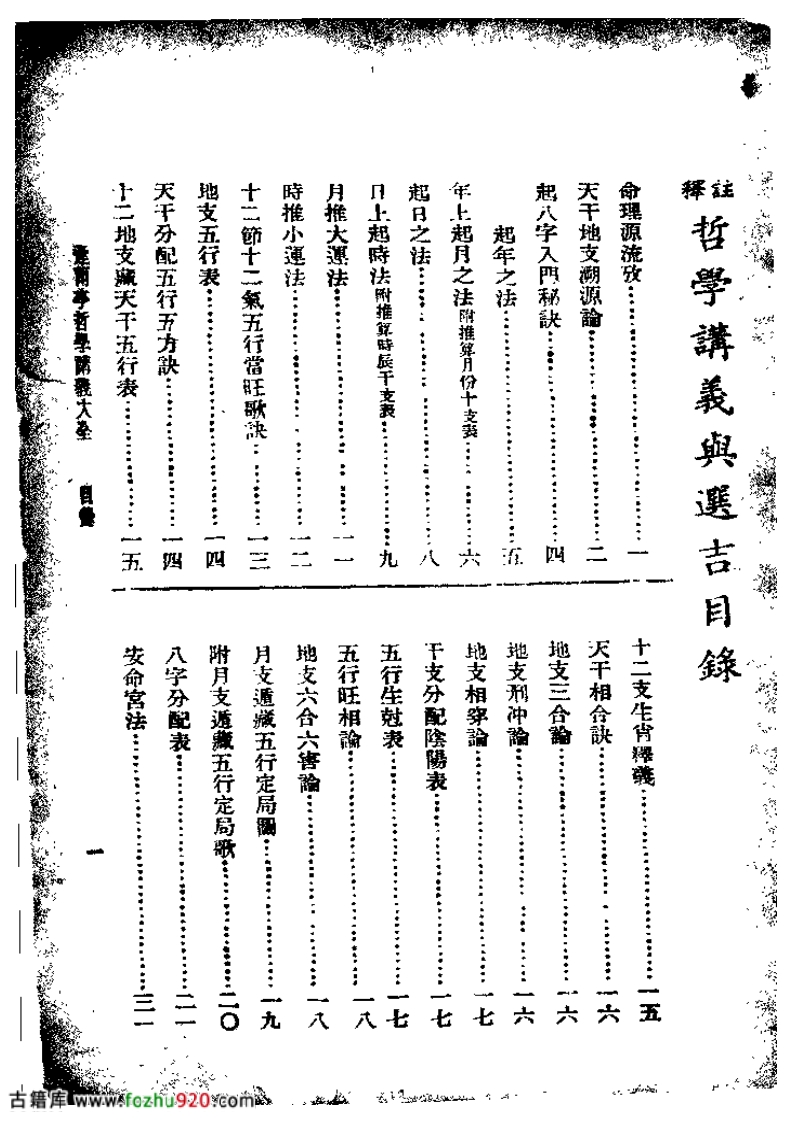 註釋 哲學講義與選吉目錄
命理源流攷 一
天干地支溯源論 二
起八字入門秘訣 四
起年之法 五
年上起月之法附推算月份干支表 六
起日之法 八
日上起時法附推算時辰干支表 九
月推大運法 一一
時推小運法 一二
十二節十二氣五行當旺歌訣 一三
地支五行表 一四
天干分配五行五方訣 一四
十二地支藏天干五行表 一五
十二支生肖釋義 一五
天干相合訣 一六
地支三合論 一六
地支刑冲論 一六
地支相穿論 一七
干支分配陰陽表 一七
五行生尅表 一七
五行旺相論 一八
地支六合六害論 一八
月支遁藏五行定局圖 一九
附月支遁藏五行定局歌 二〇
八字分配表 二一
安命宮法 三一
哲學講義大全 目錄 一
古籍库 www.fozhu920.com